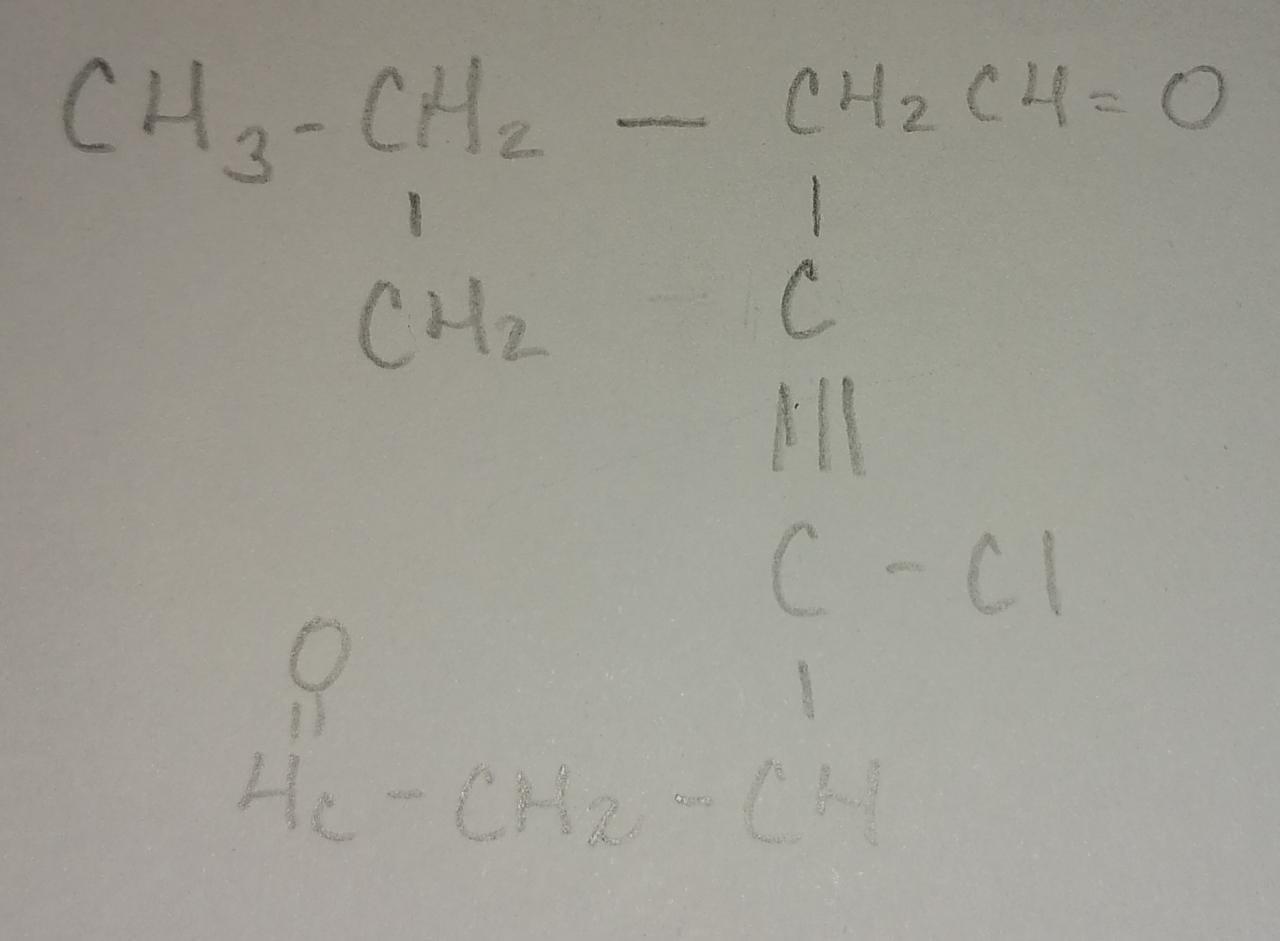 CH₃-CH₂ — CH₂CH=O
| |
CH₂ C
|||
C-Cl
O |
||
HC-CH₂-CH